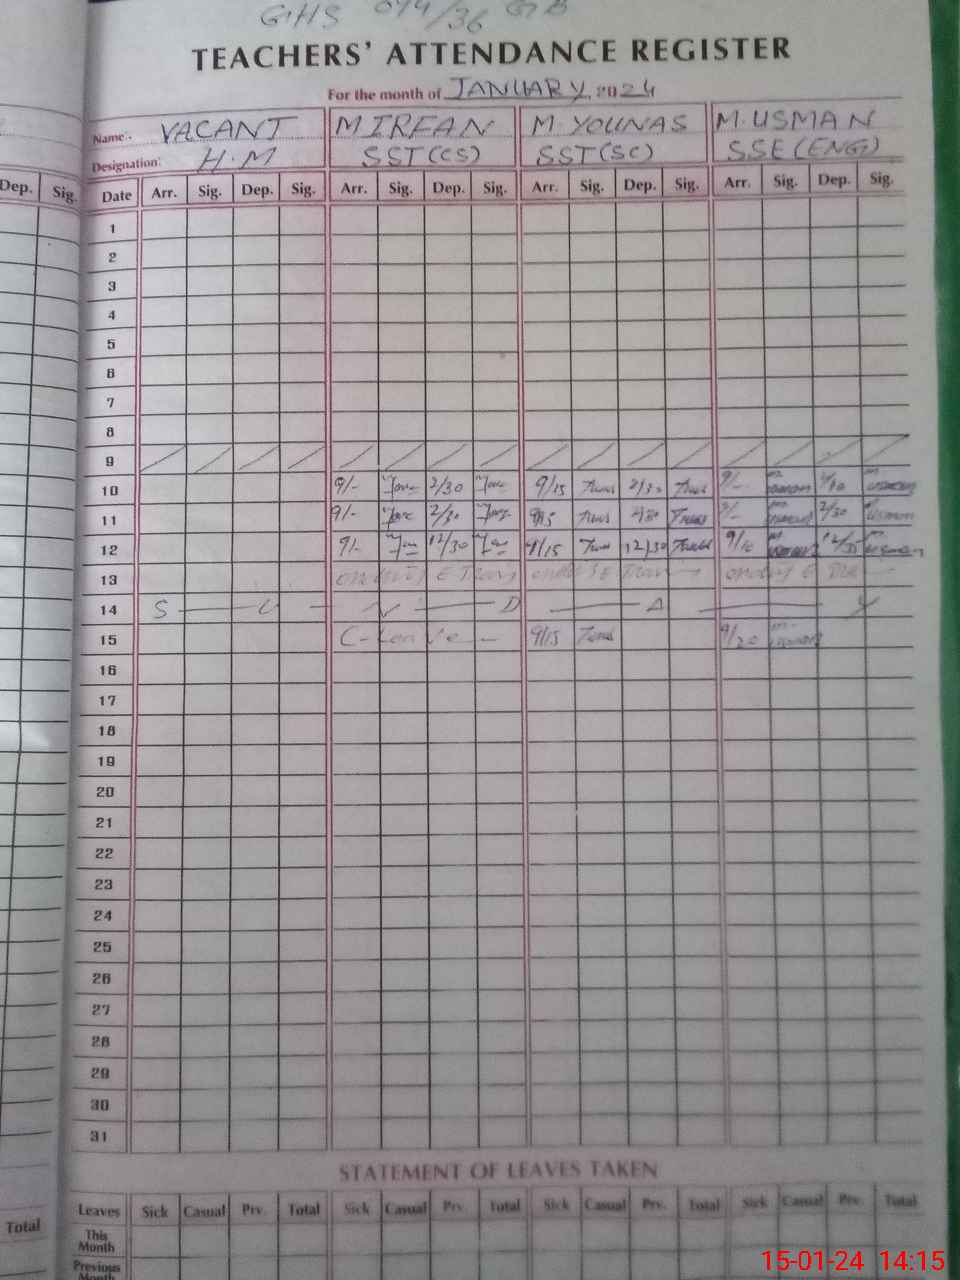 GHS 044/36 GB
TEACHERS' ATTENDANCE REGISTER
For the month of JANUARY, 2024
Name:- VACANT M IRFAN M. YOUNAS M. USMAN
Designation: H.M SST(CS) SST(SC) SSE(ENG)
Dep. Sig. Date Arr. Sig. Dep. Sig. Arr. Sig. Dep. Sig. Arr. Sig. Dep. Sig. Arr. Sig. Dep. Sig.
1
2
3
4
5
6
7
8
9
10 9/- 2/30 9/15 2/30 9/-
11 9/- 2/30 9/15 2/30 9/- 2/30
12 9/- 12/30 9/15 12/30 9/10 12/30
13 on duty E on duty E
14 S U N D A Y
15 C-Leave 9/15 9/20
16
17
18
19
20
21
22
23
24
25
26
27
28
29
30
31
STATEMENT OF LEAVES TAKEN
Leaves Sick Casual Prv. Total Sick Casual Prv. Total Sick Casual Prv. Total Sick Casual Prv. Total
Total This Month
Previous Month
15-01-24 14:15